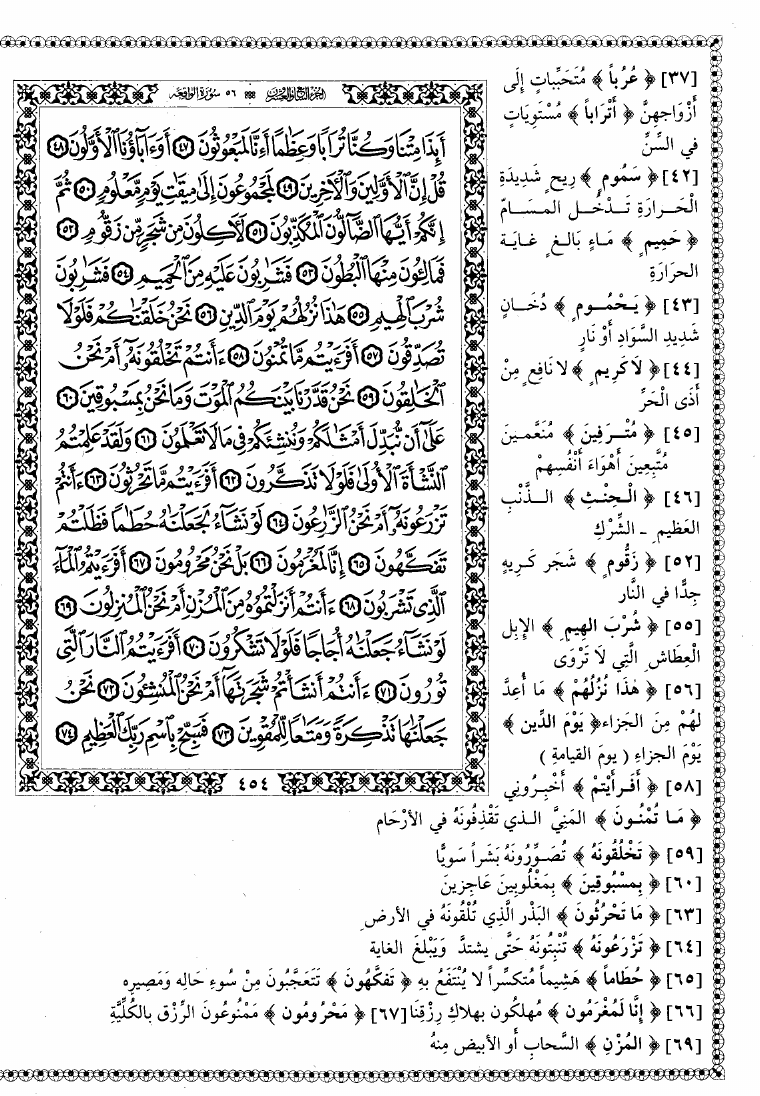 الجزء السابع والعشرون ٥٦ سورة الواقعة
أَىِٕذَا مِتْنَا وَكُنَّا تُرَابًا وَعِظَٰمًا أَءِنَّا لَمَبْعُوثُونَ ٤٧ أَوَءَابَآؤُنَا ٱلْأَوَّلُونَ ٤٨
قُلْ إِنَّ ٱلْأَوَّلِينَ وَٱلْءَاخِرِينَ ٤٩ لَمَجْمُوعُونَ إِلَىٰ مِيقَٰتِ يَوْمٍ مَّعْلُومٍ ٥٠ ثُمَّ
إِنَّكُمْ أَيُّهَا ٱلضَّآلُّونَ ٱلْمُكَذِّبُونَ ٥١ لَءَاكِلُونَ مِن شَجَرٍ مِّن زَقُّومٍ ٥٢
فَمَالِـُٔونَ مِنْهَا ٱلْبُطُونَ ٥٣ فَشَٰرِبُونَ عَلَيْهِ مِنَ ٱلْحَمِيمِ ٥٤ فَشَٰرِبُونَ
شُرْبَ ٱلْهِيمِ ٥٥ هَٰذَا نُزُلُهُمْ يَوْمَ ٱلدِّينِ ٥٦ نَحْنُ خَلَقْنَٰكُمْ فَلَوْلَا
تُصَدِّقُونَ ٥٧ أَفَرَءَيْتُم مَّا تُمْنُونَ ٥٨ ءَأَنتُمْ تَخْلُقُونَهُۥٓ أَمْ نَحْنُ
ٱلْخَٰلِقُونَ ٥٩ نَحْنُ قَدَّرْنَا بَيْنَكُمُ ٱلْمَوْتَ وَمَا نَحْنُ بِمَسْبُوقِينَ ٦٠
عَلَىٰٓ أَن نُّبَدِّلَ أَمْثَٰلَكُمْ وَنُنشِئَكُمْ فِى مَا لَا تَعْلَمُونَ ٦١ وَلَقَدْ عَلِمْتُمُ
ٱلنَّشْأَةَ ٱلْأُولَىٰ فَلَوْلَا تَذَكَّرُونَ ٦٢ أَفَرَءَيْتُم مَّا تَحْرُثُونَ ٦٣ ءَأَنتُمْ
تَزْرَعُونَهُۥٓ أَمْ نَحْنُ ٱلزَّٰرِعُونَ ٦٤ لَوْ نَشَآءُ لَجَعَلْنَٰهُ حُطَٰمًا فَظَلْتُمْ
تَفَكَّهُونَ ٦٥ إِنَّا لَمُغْرَمُونَ ٦٦ بَلْ نَحْنُ مَحْرُومُونَ ٦٧ أَفَرَءَيْتُمُ ٱلْمَآءَ
ٱلَّذِى تَشْرَبُونَ ٦٨ ءَأَنتُمْ أَنزَلْتُمُوهُ مِنَ ٱلْمُزْنِ أَمْ نَحْنُ ٱلْمُنزِلُونَ ٦٩
لَوْ نَشَآءُ جَعَلْنَٰهُ أُجَاجًا فَلَوْلَا تَشْكُرُونَ ٧٠ أَفَرَءَيْتُمُ ٱلنَّارَ ٱلَّتِى
تُورُونَ ٧١ ءَأَنتُمْ أَنشَأْتُمْ شَجَرَتَهَآ أَمْ نَحْنُ ٱلْمُنشِـُٔونَ ٧٢ نَحْنُ
جَعَلْنَٰهَا تَذْكِرَةً وَمَتَٰعًا لِّلْمُقْوِينَ ٧٣ فَسَبِّحْ بِٱسْمِ رَبِّكَ ٱلْعَظِيمِ ٧٤
٤٥٤
[٣٧] ﴿ عُرُباً ﴾ مُتَحَبِّباتٍ إِلَى
أَزْوَاجِهِنَّ ﴿ أَتْرَاباً ﴾ مُسْتَوِيَاتٍ
في السِّنِّ
[٤٢] ﴿ سَمُومٍ ﴾ رِيحٍ شَدِيدَةِ
الْحَرارَةِ تَدْخُل المسَامّ
﴿ حَمِيمٍ ﴾ مَاءٍ بَالغٍ غايَة
الحرَارَةِ
[٤٣] ﴿ يَحْمُومٍ ﴾ دُخَانٍ
شَدِيدِ السَّوَادِ أَوْ نَارٍ
[٤٤] ﴿ لَا كَرِيمٍ ﴾ لا نَافِعٍ مِنْ
أَذَى الْحَرِّ
[٤٥] ﴿ مُتْرَفِينَ ﴾ مُنَعَّمينَ
مُتَّبِعينَ أَهْوَاءَ أَنْفُسِهِمْ
[٤٦] ﴿ الْحِنْثِ ﴾ الذَّنْبِ
العَظيمِ ـ الشِّرْكِ
[٥٢] ﴿ زَقُّومٍ ﴾ شَجَر كَرِيهٍ
جِدًّا في النَّار
[٥٥] ﴿ شُرْبَ الهِيمِ ﴾ الإِبِل
الْعِطَاشِ الَّتِي لاَ تَرْوَى
[٥٦] ﴿ هٰذَا نُزُلُهُمْ ﴾ مَا أُعِدَّ
لَهُمْ مِنَ الجَزاء ﴿ يَوْمَ الدِّين ﴾
يَوْمَ الجزاءِ ( يومَ القيامةِ )
[٥٨] ﴿ أَفَرأَيْتُمْ ﴾ أَخْبِرُوني
﴿ مَا تُمْنُونَ ﴾ المَنِيَّ الذي تَقْذِفُونَهُ في الأرْحَام
[٥٩] ﴿ تَخْلُقُونَهُ ﴾ تُصَوِّرُونَهُ بَشَراً سَوِيًّا
[٦٠] ﴿ بِمسْبُوقِينَ ﴾ بِمَغْلُوبِينَ عَاجِزينَ
[٦٣] ﴿ مَا تَحْرُثُونَ ﴾ البَذْر الَّذِي تُلْقُونَهُ في الأرضِ
[٦٤] ﴿ تَزْرَعُونَهُ ﴾ تُنْبِتُونَهُ حَتَّى يشتدَّ وَيَبْلغَ الغاية
[٦٥] ﴿ حُطَاماً ﴾ هَشِيماً مُتكسِّراً لا يُنْتَفَعُ بهِ ﴿ تَفكَّهُونَ ﴾ تَتَعَجَّبُونَ مِنْ سُوءِ حَالِه وَمَصِيرِه
[٦٦] ﴿ إِنَّا لَمُغْرَمُون ﴾ مُهلكُون بهلاكِ رِزْقِنَا [٦٧] ﴿ مَحْرُومُون ﴾ مَمْنُوعُونَ الرِّزْق بالكُلِّيَّةِ
[٦٩] ﴿ المُزْنِ ﴾ السَّحابِ أَو الأبيض مِنهُ